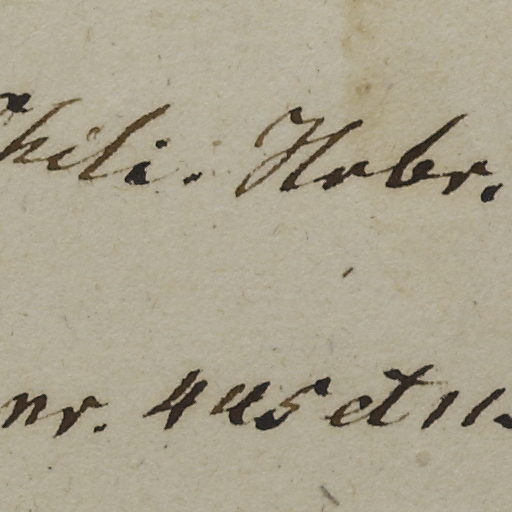 Chili. Hrbr.
nr. 445 et 11